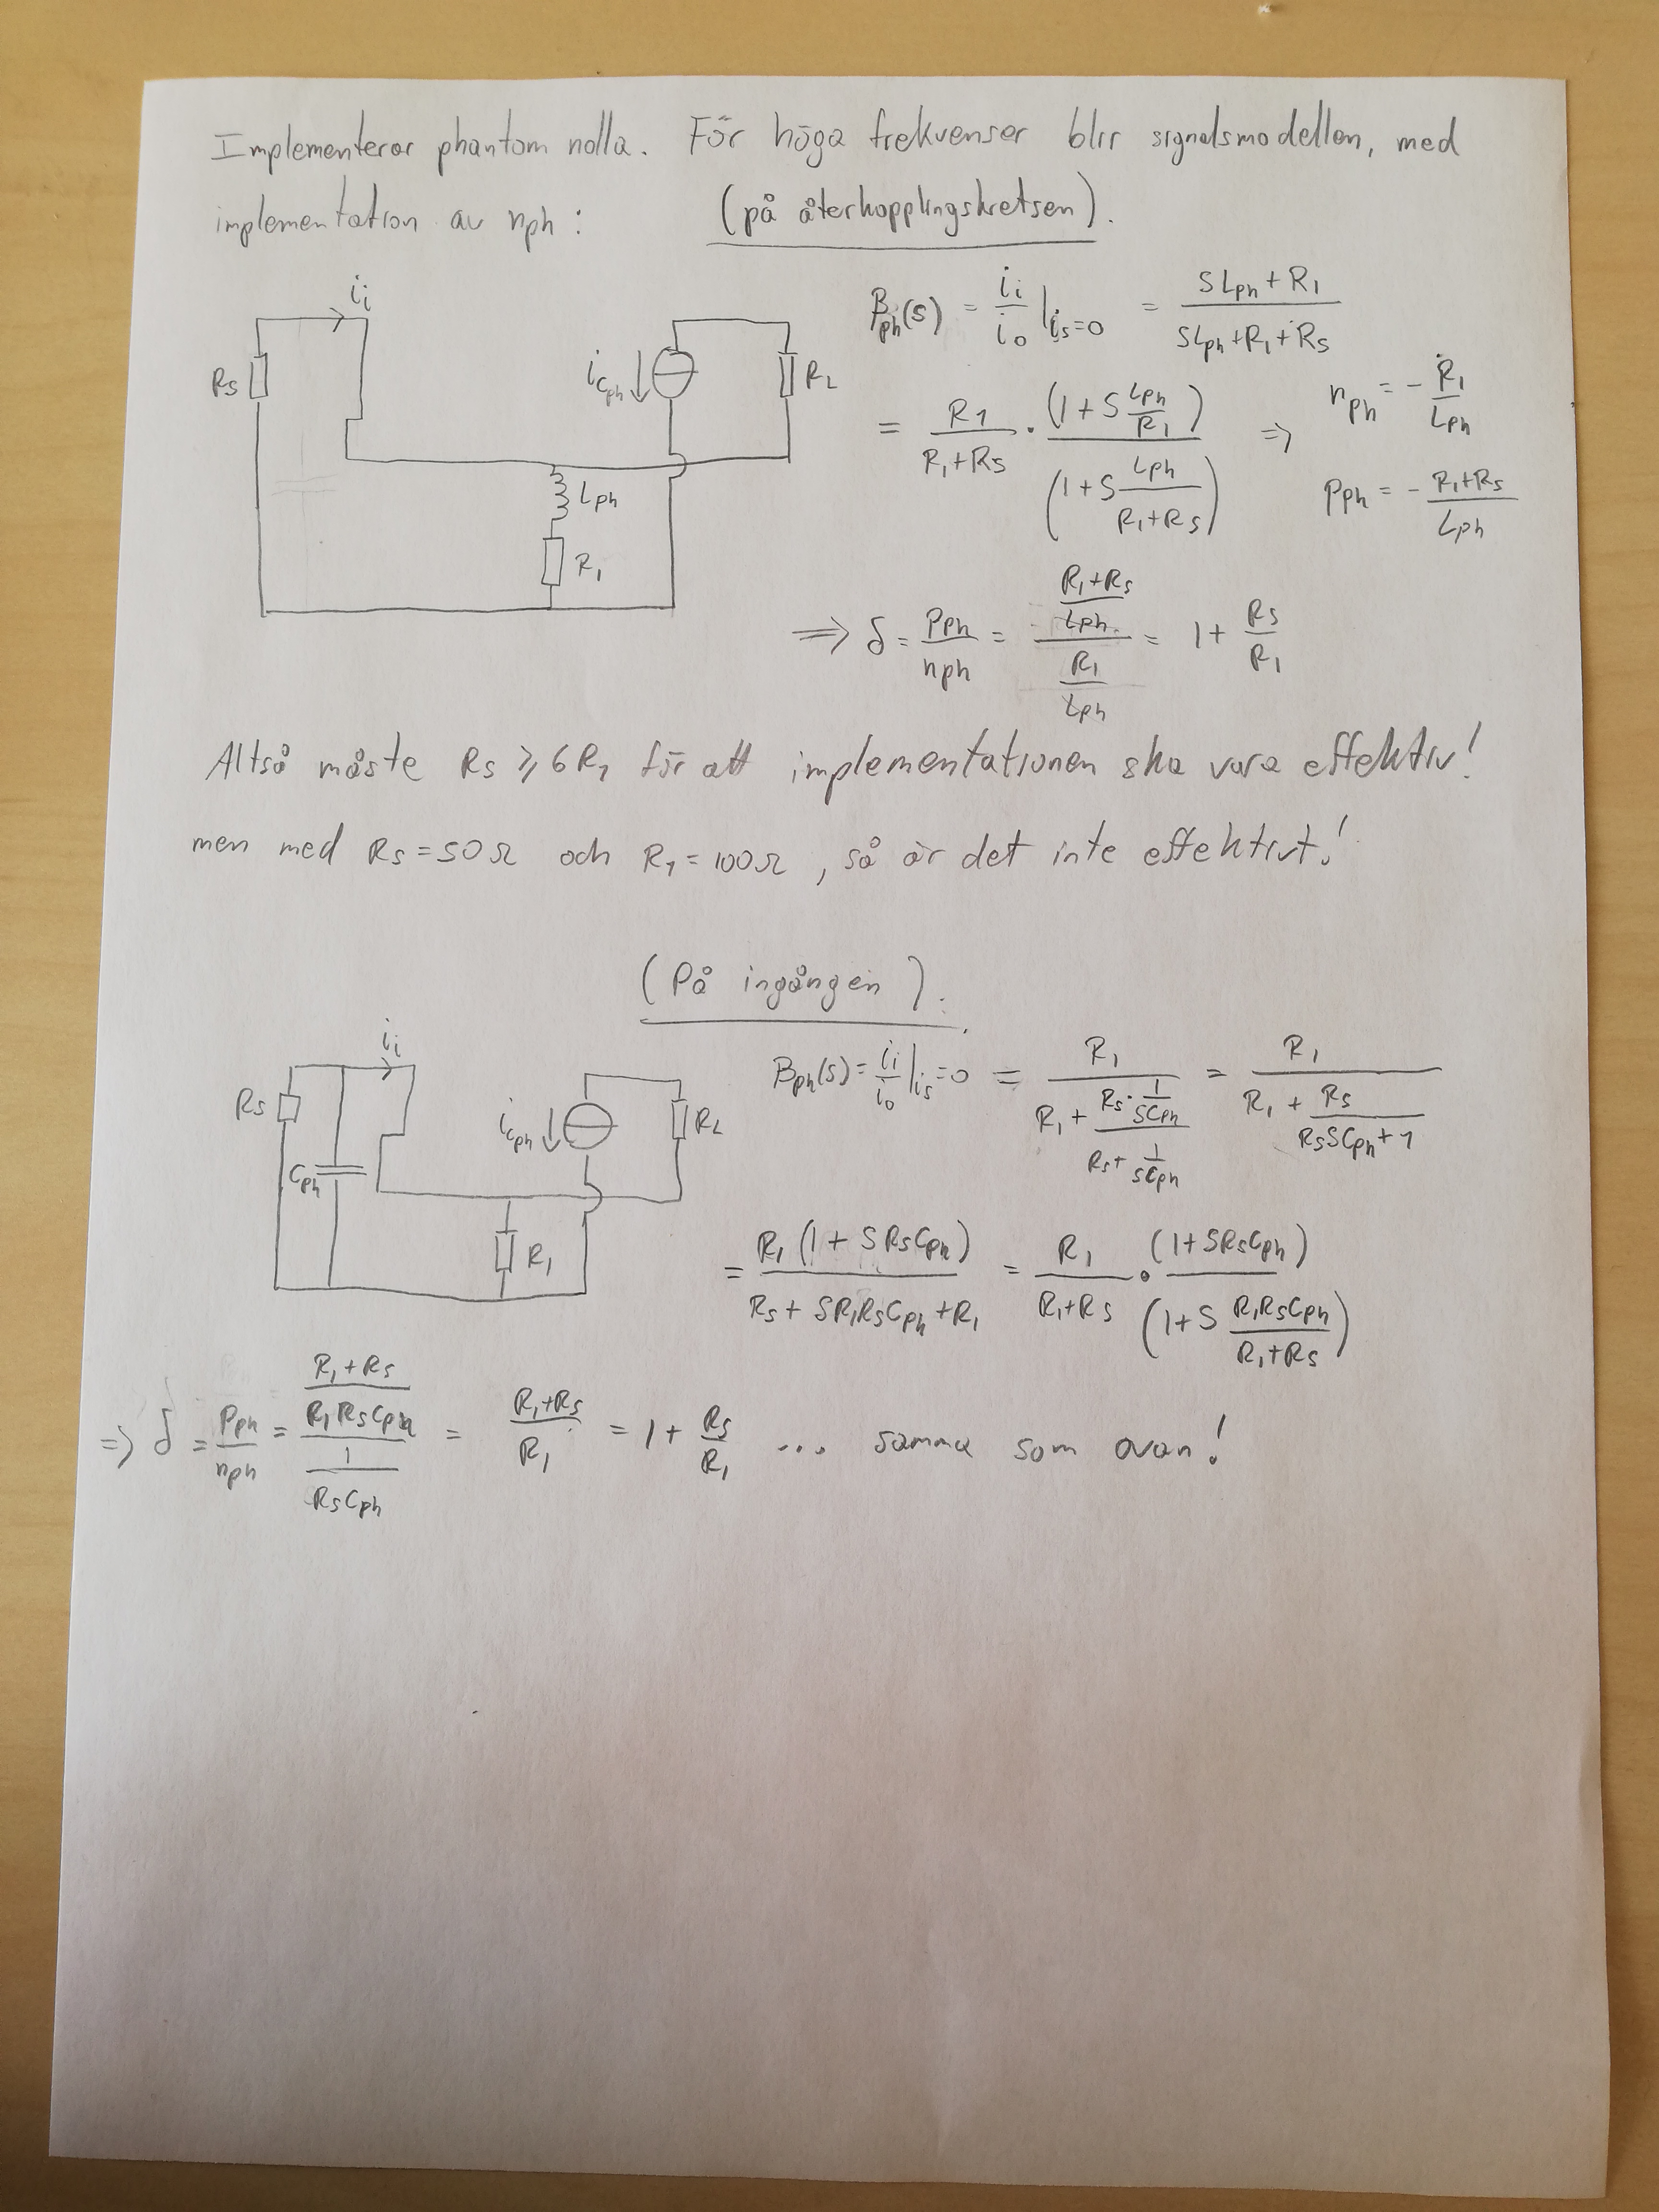 Implementerar phantom nolla. För höga frekvenser blir signalsmodellen, med
implementation av nph : (på återkopplingskretsen).
ii
Rs
icph
RL
Lph
R1
Bph(s) = ii/io |is=0 = (SLph + R1)/(SLph + R1 + Rs)
= R1/(R1+Rs) · (1 + S Lph/R1)/(1 + S Lph/(R1+Rs)) ⇒ nph = - R1/Lph
pph = - (R1+Rs)/Lph
⇒ δ = pph/nph = ((R1+Rs)/Lph)/(R1/Lph) = 1 + Rs/R1
Altså måste Rs ⩾ 6R1 för att implementationen ska vara effektiv!
men med Rs = 50Ω och R1 = 100Ω, så är det inte effektivt!
(På ingången).
ii
Rs
Cph
icph
RL
R1
Bph(s) = ii/io |is=0 = R1/(R1 + (Rs · 1/SCph)/(Rs + 1/SCph)) = R1/(R1 + Rs/(RsSCph + 1))
= R1(1 + SRsCph)/(Rs + SR1RsCph + R1) = R1/(R1+Rs) · (1 + SRsCph)/(1 + S R1RsCph/(R1+Rs))
⇒ δ = pph/nph = ((R1+Rs)/(R1RsCph))/(1/(RsCph)) = (R1+Rs)/R1 = 1 + Rs/R1 ... samma som ovan!